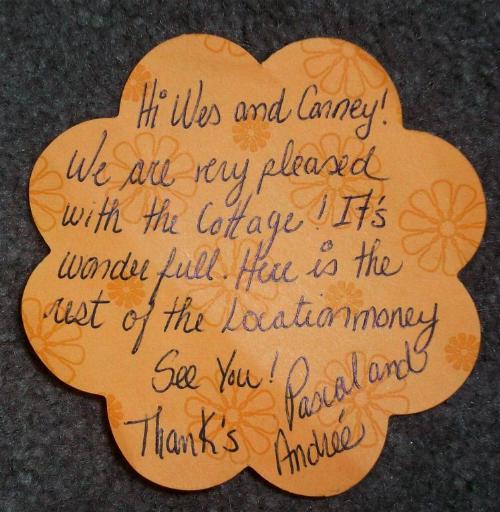 Hi Wes and Canney!
We are very pleased
with the Cottage! It's
wonderfull. Here is the
rest of the Locationmoney
See You!
Thank's
Pascal and
Andrée